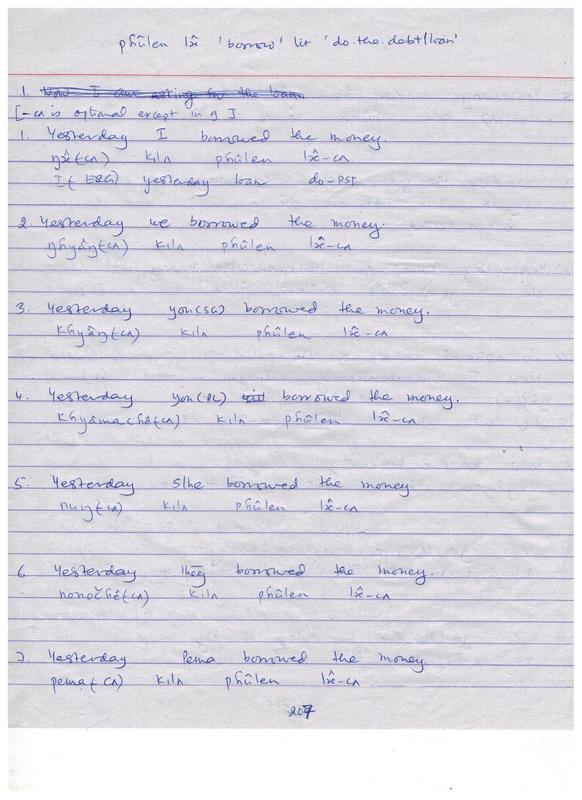 phûlen lɤ̂ 'borrow' lit 'do.the.debt/loan'
1. Now I am asking for the loan
[-cʌ is optional except in 9]
1. Yesterday I borrowed the money.
ŋɤ̂(-cʌ) kilʌ phûlen lɤ̂-cʌ
I(ERG) yesterday loan do-PST
2. Yesterday we borrowed the money.
ŋhyâŋ(-cʌ) kilʌ phûlen lɤ̂-cʌ
3. Yesterday you(SG) borrowed the money.
khyâŋ(-cʌ) kilʌ phûlen lɤ̂-cʌ
4. Yesterday you(PL) borrowed the money.
khyâmachê(-cʌ) kilʌ phûlen lɤ̂-cʌ
5. Yesterday s/he borrowed the money
kilʌ phûlen lɤ̂-cʌ
6 Yesterday they borrowed the money.
kilʌ phûlen lɤ̂-cʌ
7. Yesterday Pema borrowed the money.
pema(-cʌ) kilʌ phûlen lɤ̂-cʌ
207